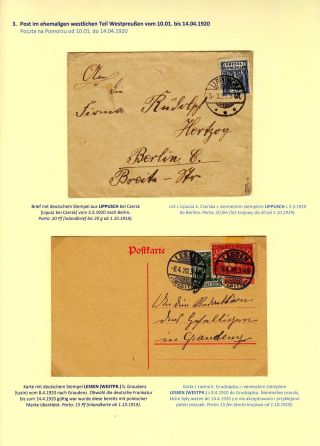 3. Post im ehemaligen westlichen Teil Westpreußen vom 10.01. bis 14.04.1920
Poczta na Pomorzu od 10.01. do 14.04.1920
An die
Firma Rudolph
Hertzog
Berlin C.
Breite-Str
LIPPUSCH
Brief mit deutschem Stempel aus LIPPUSCH bei Czersk
(Lipusz bei Czersk) vom 3.3.1920 nach Berlin.
Porto: 20 Pf (Inlandbrief bis 20 g ab 1.10.1919).
List z Lipusza k. Czerska z niemieckim stemplem z 3.3.1920
do Berlina. Porto: 20 fen (list krajowy do 20 od 1.10.1919).
Postkarte
LESSEN
8.4.20
LESSEN
8.4.20
An die Redaktion
des Geselligen
in Graudenz
Karte mit deutschem Stempel LESSEN (WESTPR.) b. Graudenz
(Łasin) vom 8.4.1920 nach Graudenz. Obwohl die deutsche Frankatur
bis zum 14.4.1920 gültig war wurde diese bereits mit polnischer
Marke überklebt. Porto: 15 Pf (Inlandkarte ab 1.10.1919).
Karta z Łasina k. Grudziądza z niemieckim stemplem
LESSEN (WESTPR.) z 8.4.1920 do Grudziądza. Niemieckie znaczki,
które były ważne do 14.4.1920